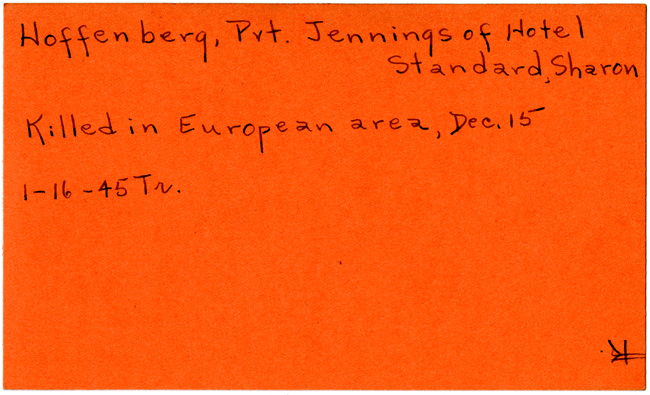 Hoffenberg, Pvt. Jennings of Hotel
Standard, Sharon
Killed in European area, Dec. 15
1-16-45 Tr.